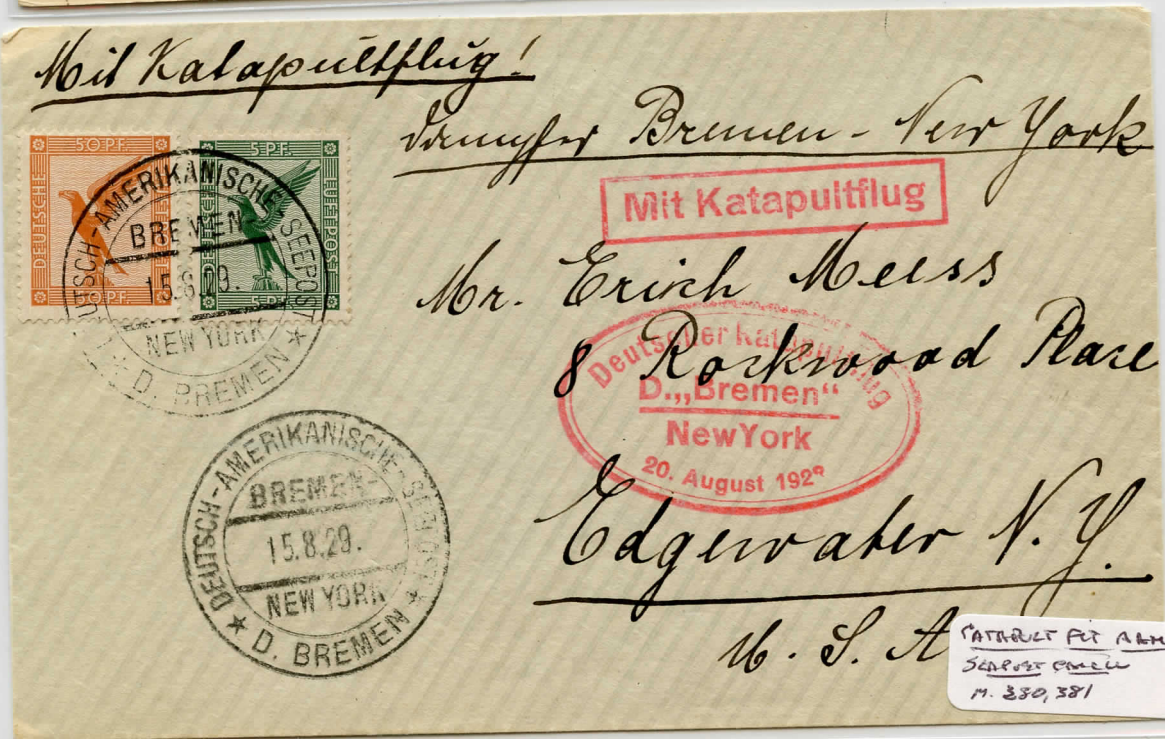 Mit Katapultflug!
Dampfer Bremen - New York
50 PF.
5 PF.
DEUTSCHE
LUFTPOST
50 PF.
5 PF.
DEUTSCH-AMERIKANISCHE SEEPOST
BREMEN
15.8.29.
NEW YORK
D. BREMEN
Mit Katapultflug
Mr. Erich Meess
8 Rockwood Place
Deutscher Katapultflug
D. „Bremen“
New York
20. August 1929
Edgewater N. Y.
U. S. A
DEUTSCH-AMERIKANISCHE-SEEPOST
BREMEN-
15.8.29.
NEW YORK
D. BREMEN
CATAPULT FLT
M. 380, 381